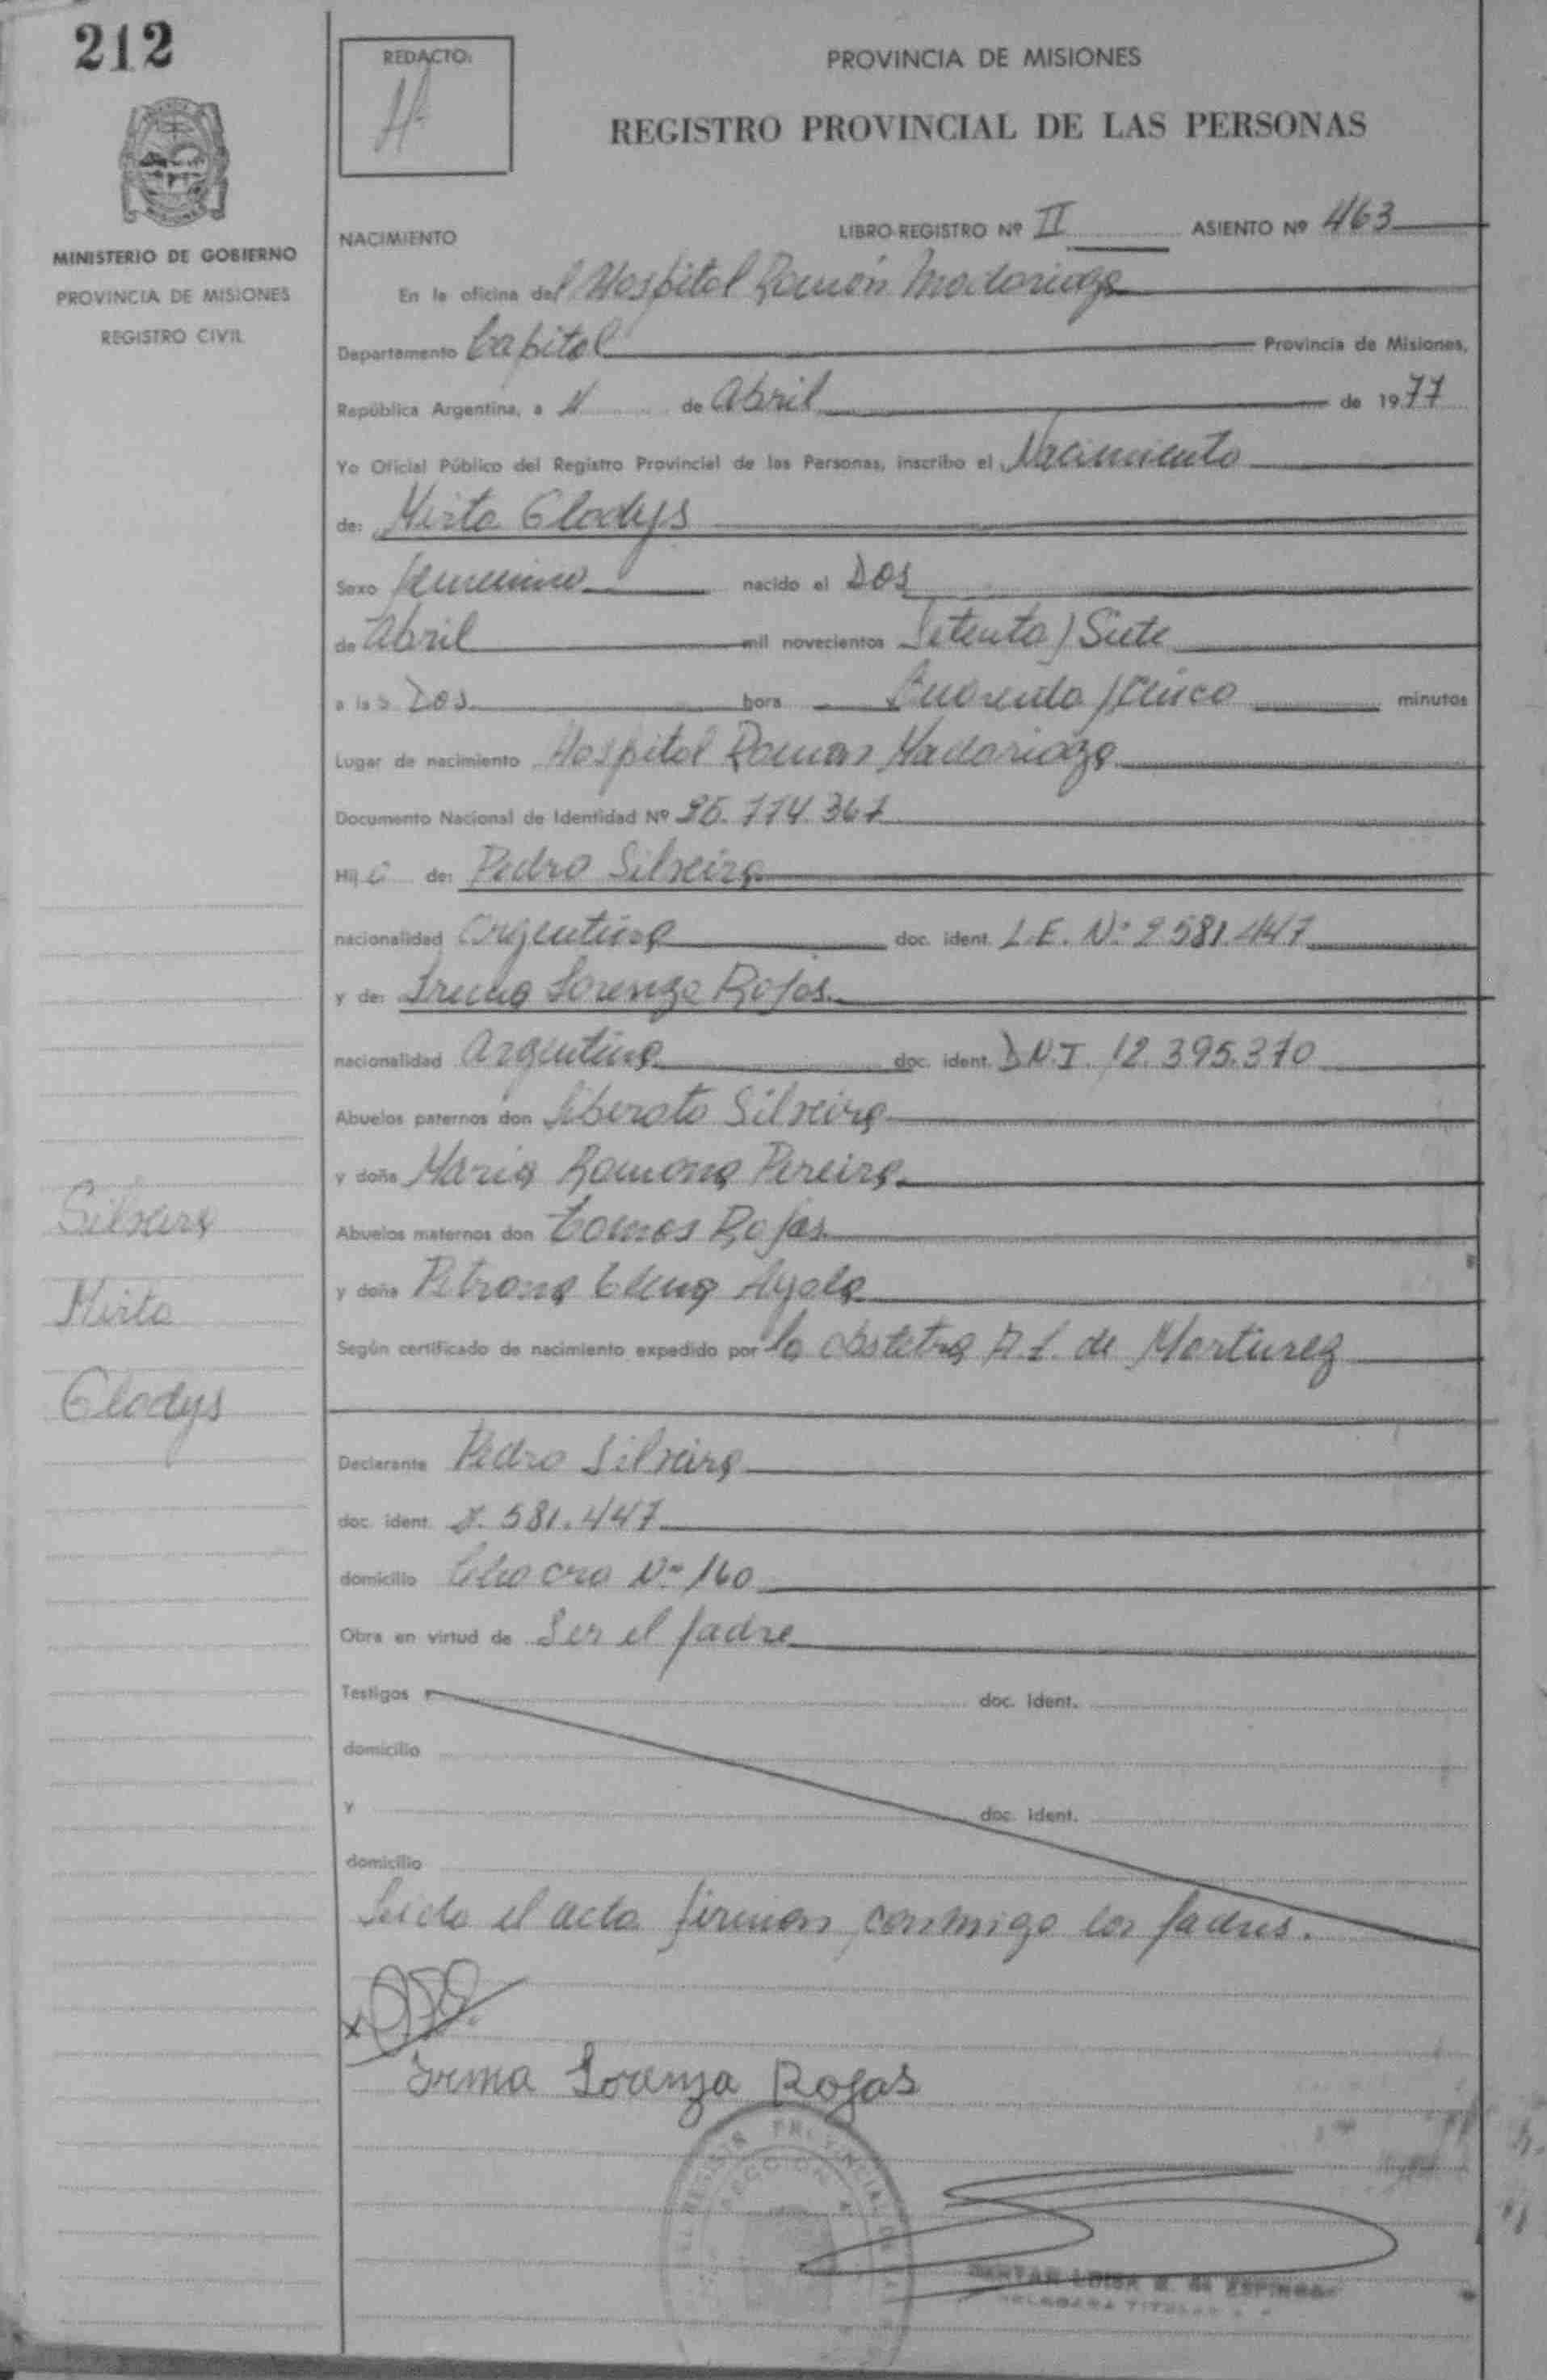 212
REDACTO:
PROVINCIA DE MISIONES
REGISTRO PROVINCIAL DE LAS PERSONAS
MINISTERIO DE GOBIERNO
PROVINCIA DE MISIONES
REGISTRO CIVIL
NACIMIENTO LIBRO-REGISTRO Nº II ASIENTO Nº 463
En la oficina del Hospital Ramón Madariaga
Departamento Capital Provincia de Misiones,
República Argentina, a de Abril de 1977
Yo Oficial Público del Registro Provincial de las Personas, inscribo el Nacimiento
de: Mirta Gladys
Sexo femenino nacido el Dos
de Abril mil novecientos Setenta y Siete
a las Dos hora Cuarenta y Cinco minutos
Lugar de nacimiento Hospital Ramon Madariaga
Documento Nacional de Identidad Nº 25.774.367
Hija de: Pedro Silveira
nacionalidad Argentina doc. ident. L.E. Nº
y de: Irma Lorenza Rojas
nacionalidad Argentina doc. ident. D.N.I. 12.395.370
Abuelos paternos don Liberato Silveira
y doña Maria Ramona Pereira
Abuelos maternos don Tomas Rojas
y doña Petrona Elena Ayala
Según certificado de nacimiento expedido por la obstetra de Martinez
Silveira
Mirta
Gladys
Declarante Pedro Silveira
doc. ident. 581.447
domicilio Chacra Nº 160
Obra en virtud de Ser el padre
Testigos doc. ident.
domicilio
y doc. ident.
domicilio
Leida el acta firman conmigo los padres.
Irma Loranza Rojas